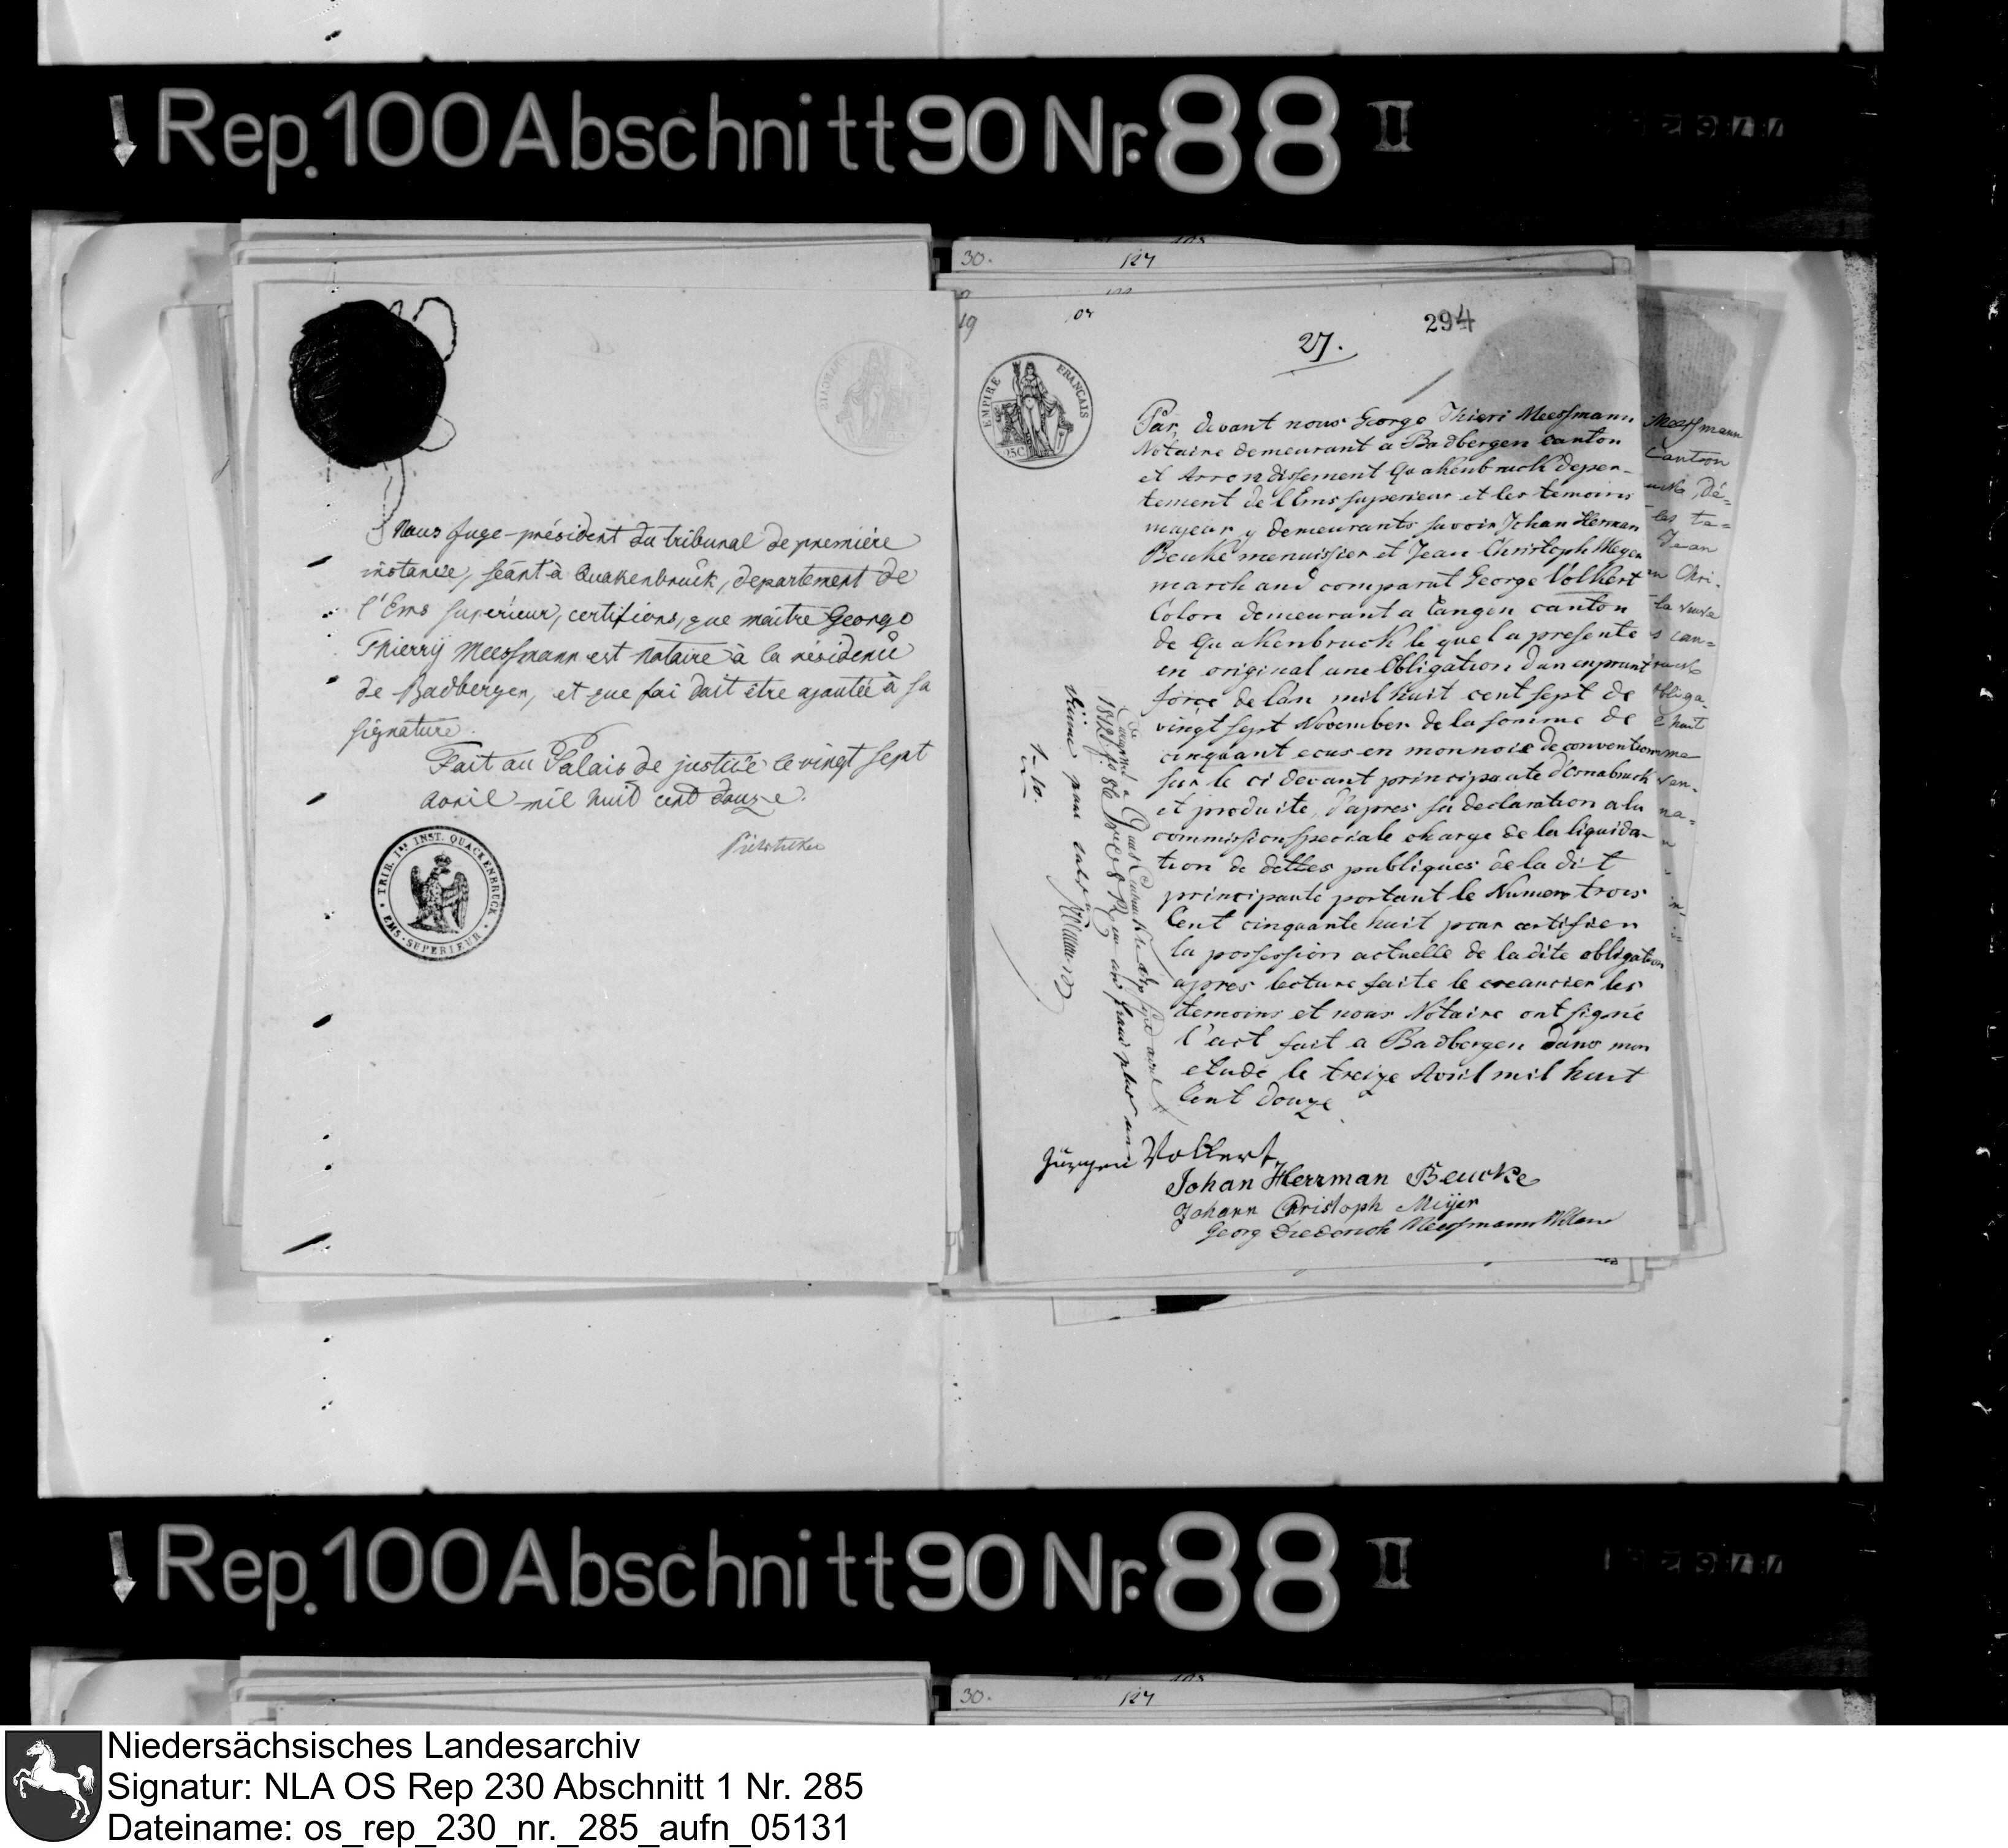 Rep. 100 Abschnitt 90 Nr. 88 II
Nous Juge-président du tribunal de première
instance, séant à Quakenbruck, departement de
l'Ems superieur, certifions, que maitre George
Thierrÿ Meessmann est notaire à la residence
de Badbergen, et que foi doit être ajoutée à sa
signature.
Fait au Palais de justice le vingt sept
avril mil huit cent douze.
TRIB. 1re INST. QUACKENBRUCK
EMS-SUPERIEUR
30.
127
19
27.
294
EMPIRE FRANÇAIS
25C
Par, devant nous George Thieri Meessmann
Notaire demeurant a Badbergen canton
et Arrondissement Quakenbruck depar-
tement de l'Ems superieur et les temoins
majeur, y demeurants savoir Johan Herman
Beuke menuissier et Jean Christoph Meyer
marchand comparut George Volkert
Colon demeurant a Langen canton
de Quakenbruck le quel a presente
en original une Obligation d'un enprunt
force de l'an mil huit cent sept de
vingt sept November de la somme de
cinquant ecus en monnoie de convention
sur le ci devant principaute d'Osnabruck
et produite, d'apres sa declaration a la
commission speciale charge de la liquida-
tion de dettes publiques de la dit
principaute portant le Numero trois
Cent cinquante huit pour certifier
la possession actuelle de la dite obligation
apres lecture faite le creancier les
temoins et nous Notaire ont signé
l'act fait a Badbergen dans mon
etude le treize Avril mil huit
Cent douze
Jürgen Volkert
Johan Herrman Beucke
Johann Christoph Meijer
Georg Diederich Meessmann
1-10.
Meessmann
Canton
Jean
la veuve
Rep. 100 Abschnitt 90 Nr. 88 II
30.
127
Niedersächsisches Landesarchiv
Signatur: NLA OS Rep 230 Abschnitt 1 Nr. 285
Dateiname: os_rep_230_nr._285_aufn_05131